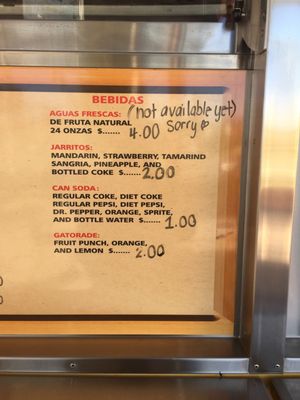 BEBIDAS
AGUAS FRESCAS: (not available yet)
DE FRUTA NATURAL Sorry
24 ONZAS $....... 4.00
JARRITOS:
MANDARIN, STRAWBERRY, TAMARIND
SANGRIA, PINEAPPLE, AND
BOTTLED COKE $....... 2.00
CAN SODA:
REGULAR COKE, DIET COKE
REGULAR PEPSI, DIET PEPSI,
DR. PEPPER, ORANGE, SPRITE,
AND BOTTLE WATER $....... 1.00
GATORADE:
FRUIT PUNCH, ORANGE,
AND LEMON $....... 2.00